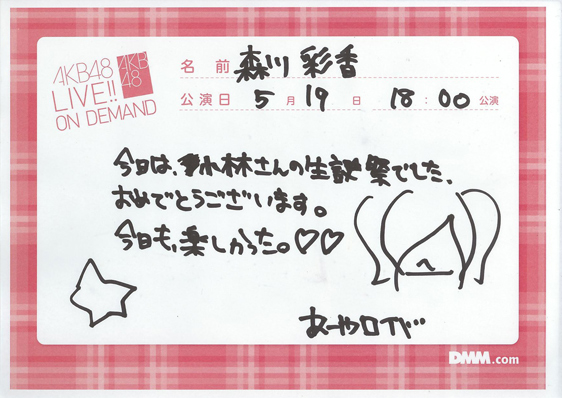 AKB48
LIVE!!
ON DEMAND
AKB
48
名 前 森川 彩香
公演日 5 月 19 日 18 : 00 公演
今日は、れ林さんの生誕祭でした、
おめでとうございます。
今日も、楽しかった。♡♡
あーやロイド
DMM.com